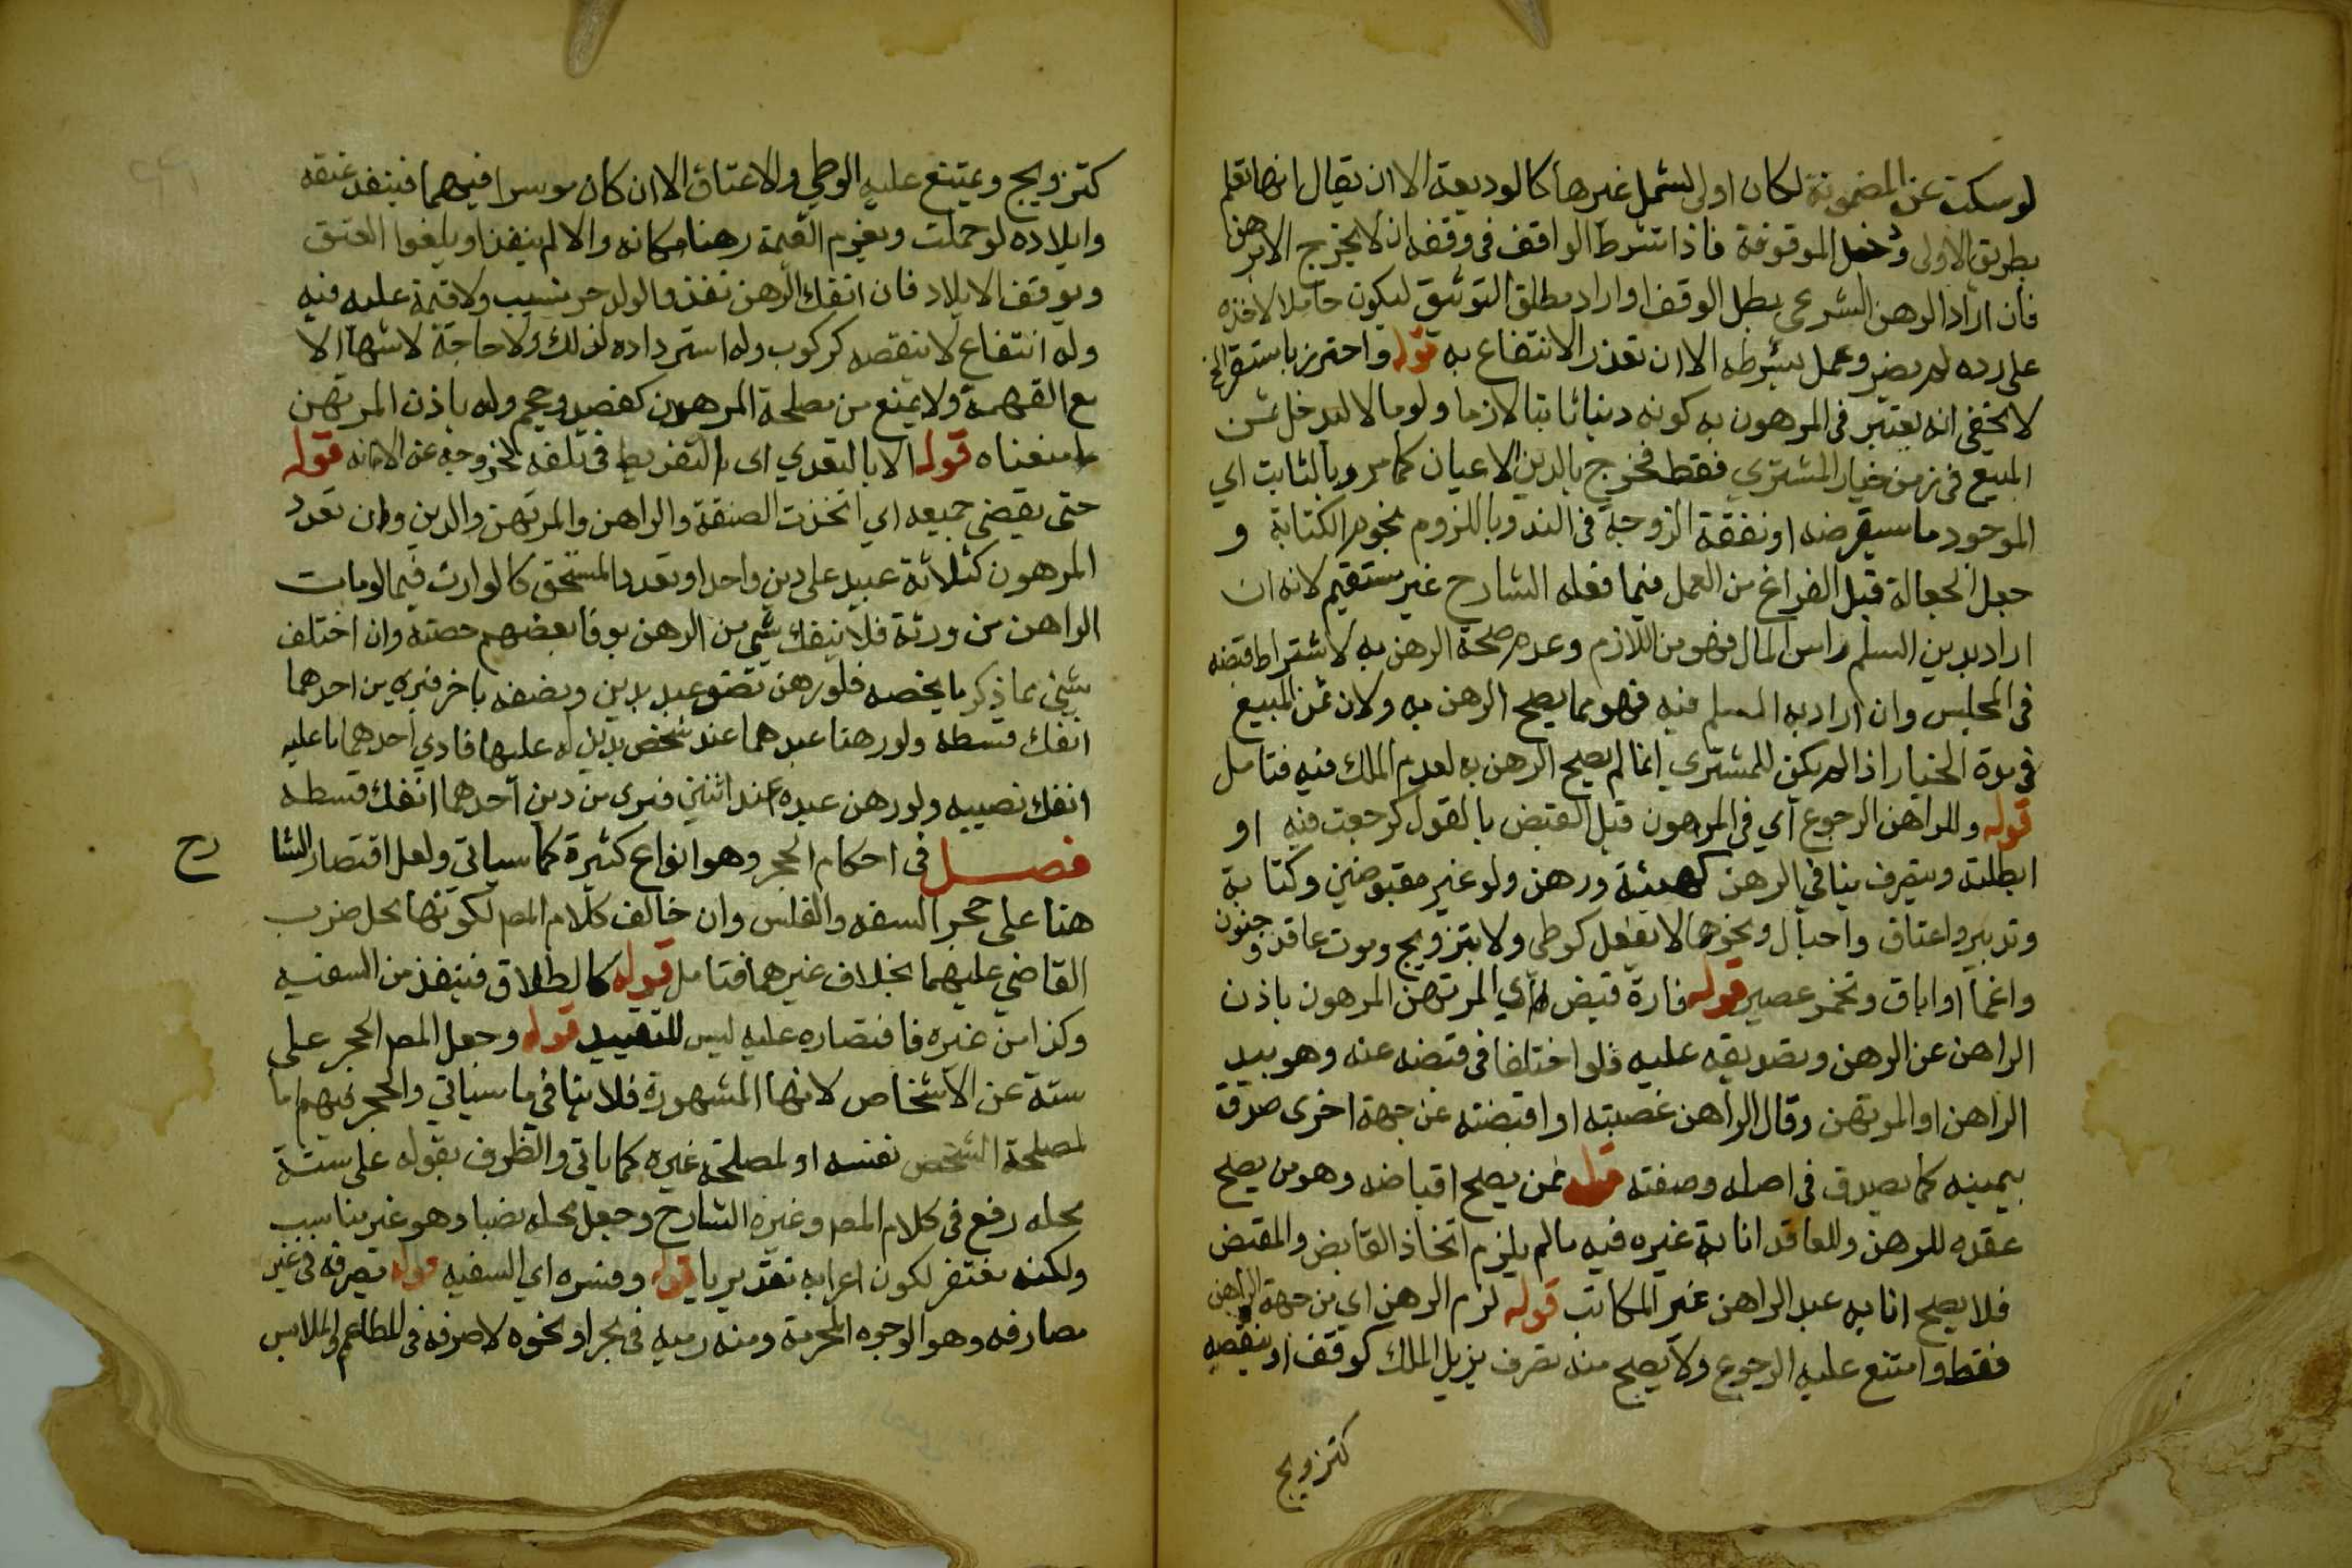 لو سكت عن المضمونة لكان اولى ليشمل غيرها كالوديعة الا ان يقال انها تعلم
بطريق الاولى ودخل الموقوفة فاذا شرط الواقف في وقفه ان لا يخرج الا برهن
فان اراد الرهن الشرعي بطل الوقف او اراد مطلق التوثيق ليكون حاملا لاخذه
على رده لم يضر وعمل بشرطه الا ان تعذر الانتفاع به قوله واحترز باستقر الخ
لا يخفى انه يعتبر في المرهون به كونه دينا ثابتا لازما ولو مالا ليدخل ثمن
المبيع في زمن خيار المشتري فقط فخرج بالدين الاعيان كما مر وبالثابت اي
الموجود ما سيقرضه او نفقة الزوجة في الغد وباللزوم نجوم الكتابة و
جعل الجعالة قبل الفراغ من العمل فيما فعله الشارح غير مستقيم لانه ان
اراد بدين السلم راس المال فهو من اللازم وعدم صحة الرهن به لاشتراط قبضه
في المجلس وان اراد به المسلم فيه فهو مما يصح الرهن به ولان ثمن المبيع
في مدة الخيار اذا لم يكن للمشتري انما لم يصح الرهن به لعدم الملك فيه فتامل
قوله وللراهن الرجوع اي في المرهون قبل القبض بالقول كرجعت فيه او
ابطلته وبتصرف ينافي الرهن كهبة ورهن ولو غير مقبوضين وكتابة
وتدبير واعتاق واحبال ونحوها لا بفعل كوطي ولا بتزويج وموت عاقد وجنون
واغما او اباق وتخمر عصير قوله فارة قبض اي المرتهن المرهون باذن
الراهن عن الرهن وتصديقه عليه فلو اختلفا في قبضه عنه وهو بيد
الراهن او المرتهن وقال الراهن غصبته او اقبضته عن جهة اخرى صدق
بيمينه كما يصدق في اصله وصفته قوله ممن يصح اقباضه وهو من يصح
عقده للرهن وللعاقد انابة غيره فيه ما لم يلزم اتخاذ القابض والمقبض
فلا يصح انابه عبد الراهن غير المكاتب قوله لزم الرهن اي من جهة الراهن
فقط وامتنع عليه الرجوع ولا يصح منه تصرف يزيل الملك كوقف او ينقصه
كتزويج
كتزويج ويمتنع عليه الوطي والاعتاق الا ان كان موسرا فيهما فينفذ عتقه
وايلاده لو حملت ويغرم القيمة رهنا مكانه والا لم ينفذا ويلغوا العتق
ويوقف الايلاد فان انفك الرهن نفذ والولد حر نسيب ولا قيمة عليه فيه
وله انتفاع لا ينقصه كركوب وله استرداده لذلك ولا حاجة لاشهاد الا
مع التهمة ولا يمنع من مصلحة المرهون كفصد وحجم وله باذن المرتهن
ما منعناه قوله الا بالتعدي اي بالتفريط في تلفه لخروجه عن الامانه قوله
حتى يقضي جميعه اي اتخذت الصفقة والراهن والمرتهن والدين وان تعدد
المرهون كثلاثة عبيد على دين واحد او تعدد المستحق كالوارث فيما لو مات
الراهن عن ورثة فلا ينفك شي من الرهن بوفا بعضهم حصته وان اختلف
شي مما ذكر ما يخصه فلو رهن نصف عبد بدين ونصفه باخر فبري من احدهما
انفك قسطه ولو رهنا عبدهما عند شخص بدين له عليهما فادي احدهما ما عليه
انفك نصيبه ولو رهن عبده عند اثنين فبرى من دين احدهما انفك قسطه
فصل في احكام الحجر وهو انواع كثيرة كما سياتي ولعل اقتصار الشا رح
هنا على حجر السفه والفلس وان خالف كلام المص لكونها محل ضرب
القاضي عليهما بخلاف غيرهما فتامل قوله كالطلاق فينفذ من السفيه
وكذا من غيره فاقتصاره عليه ليس للتقييد قوله وجعل المص الحجر على
ستة عن الاشخاص لانها المشهورة فلا ينافي ما سياتي والحجر فيهم اما
لمصلحة الشخص نفسه او لمصلحة غيره كما ياتي والظرف بقوله على ستة
محله رفع في كلام المص وغيره الشارح وجعل محله نصبا وهو غير مناسب
ولكنه مغتفر لكون اعرابه تقديريا قوله وفسره اي السفيه قوله بصرفه في غير
مصارفه وهو الوجوه المحرمة ومنه رميه في بحر او نحوه لا صرفه في المطاعم والملابس